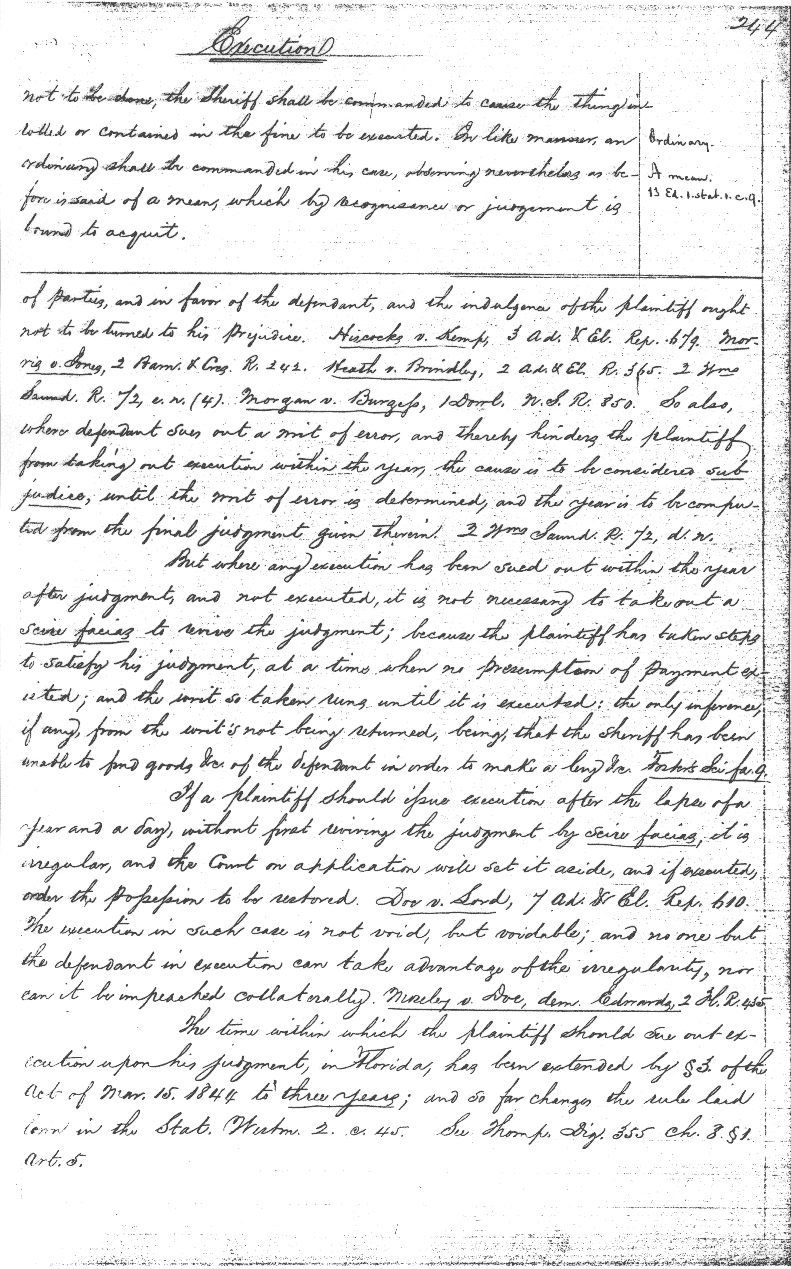 244
Execution
not to be done, the Sheriff shall be commanded to cause the thing in-
rolled or contained in the fine to be executed. In like manner, an
ordinary shall be commanded in his case, observing nevertheless as be-
fore is said of a mean, which by recognisance or judgement is
bound to acquit.
Ordinary.
A mean.
13 Ed. 1. stat. 1. c. 9.
of parties, and in favor of the defendant, and the indulgence of the plaintiff ought
not to be turned to his prejudice. Hiscocks v. Kemp, 3 Ad. & El. Rep. 679. Mor-
ris v. Jones, 2 Barn. & Cres. R. 242. Heath v. Brindley, 2 Ad. & El. R. 365. 2 Wms
Saund. R. 72, e. n. (4). Morgan v. Burgess, 1 Dowl. N. S. R. 850. So also,
where defendant sues out a writ of error, and thereby hinders the plaintiff
from taking out execution within the year, the cause is to be considered sub
judice, until the writ of error is determined, and the year is to be compu-
ted from the final judgment given therein. 2 Wms Saund. R. 72, d. n.
But where any execution has been sued out within the year
after judgment, and not executed, it is not necessary to take out a
scire facias to revive the judgment; because the plaintiff has taken steps
to satisfy his judgment, at a time when no presumption of payment ex-
isted; and the writ so taken runs until it is executed: the only inference,
if any, from the writ's not being returned, being, that the sheriff has been
unable to find goods &c. of the defendant in order to make a levy &c. Foster's Sci. fa. 9.
If a plaintiff should issue execution after the lapse of a
year and a day, without first reviving the judgment by scire facias, it is
irregular, and the Court on application will set it aside, and if executed,
order the possession to be restored. Doe v. Lord, 7 Ad. & El. Rep. 610.
The execution in such case is not void, but voidable; and no one but
the defendant in execution can take advantage of the irregularity, nor
can it be impeached collaterally. Mozeley v. Doe, dem. Edwards, 2 Fl. R. 435
The time within which the plaintiff should sue out ex-
ecution upon his judgment, in Florida, has been extended by §3. of the
Act of Mar. 15. 1844 to three years; and so far changes the rule laid
down in the Stat. Westm. 2. c. 45. See Thomp. Dig. 355 ch. 3. §1.
Art. 5.